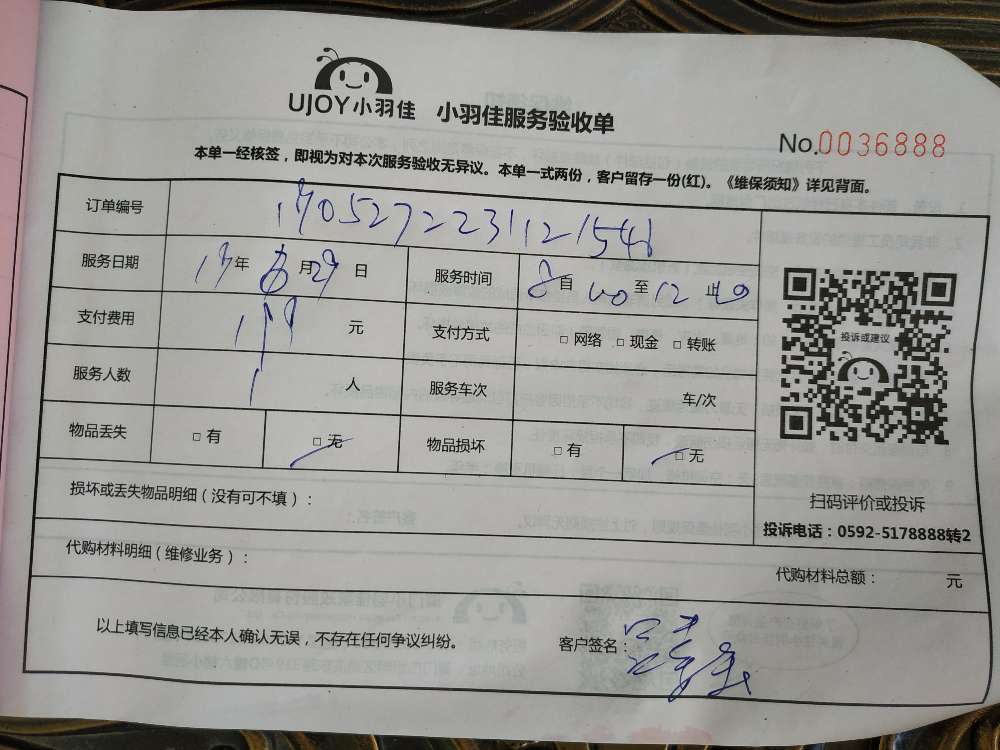 UJOY小羽佳 小羽佳服务验收单
No.0036888
本单一经核签，即视为对本次服务验收无异议。本单一式两份，客户留存一份(红)。《维保须知》详见背面。
订单编号
服务日期 17年 月29日 服务时间 8自00至12此
支付费用 元 支付方式 □网络 □现金 □转账
服务人数 1 人 服务车次 车/次
物品丢失 □有 □无 物品损坏 □有 □无
投诉或建议
扫码评价或投诉
投诉电话：0592-5178888转2
损坏或丢失物品明细（没有可不填）：
代购材料明细（维修业务）：
代购材料总额： 元
以上填写信息已经本人确认无误，不存在任何争议纠纷。 客户签名：